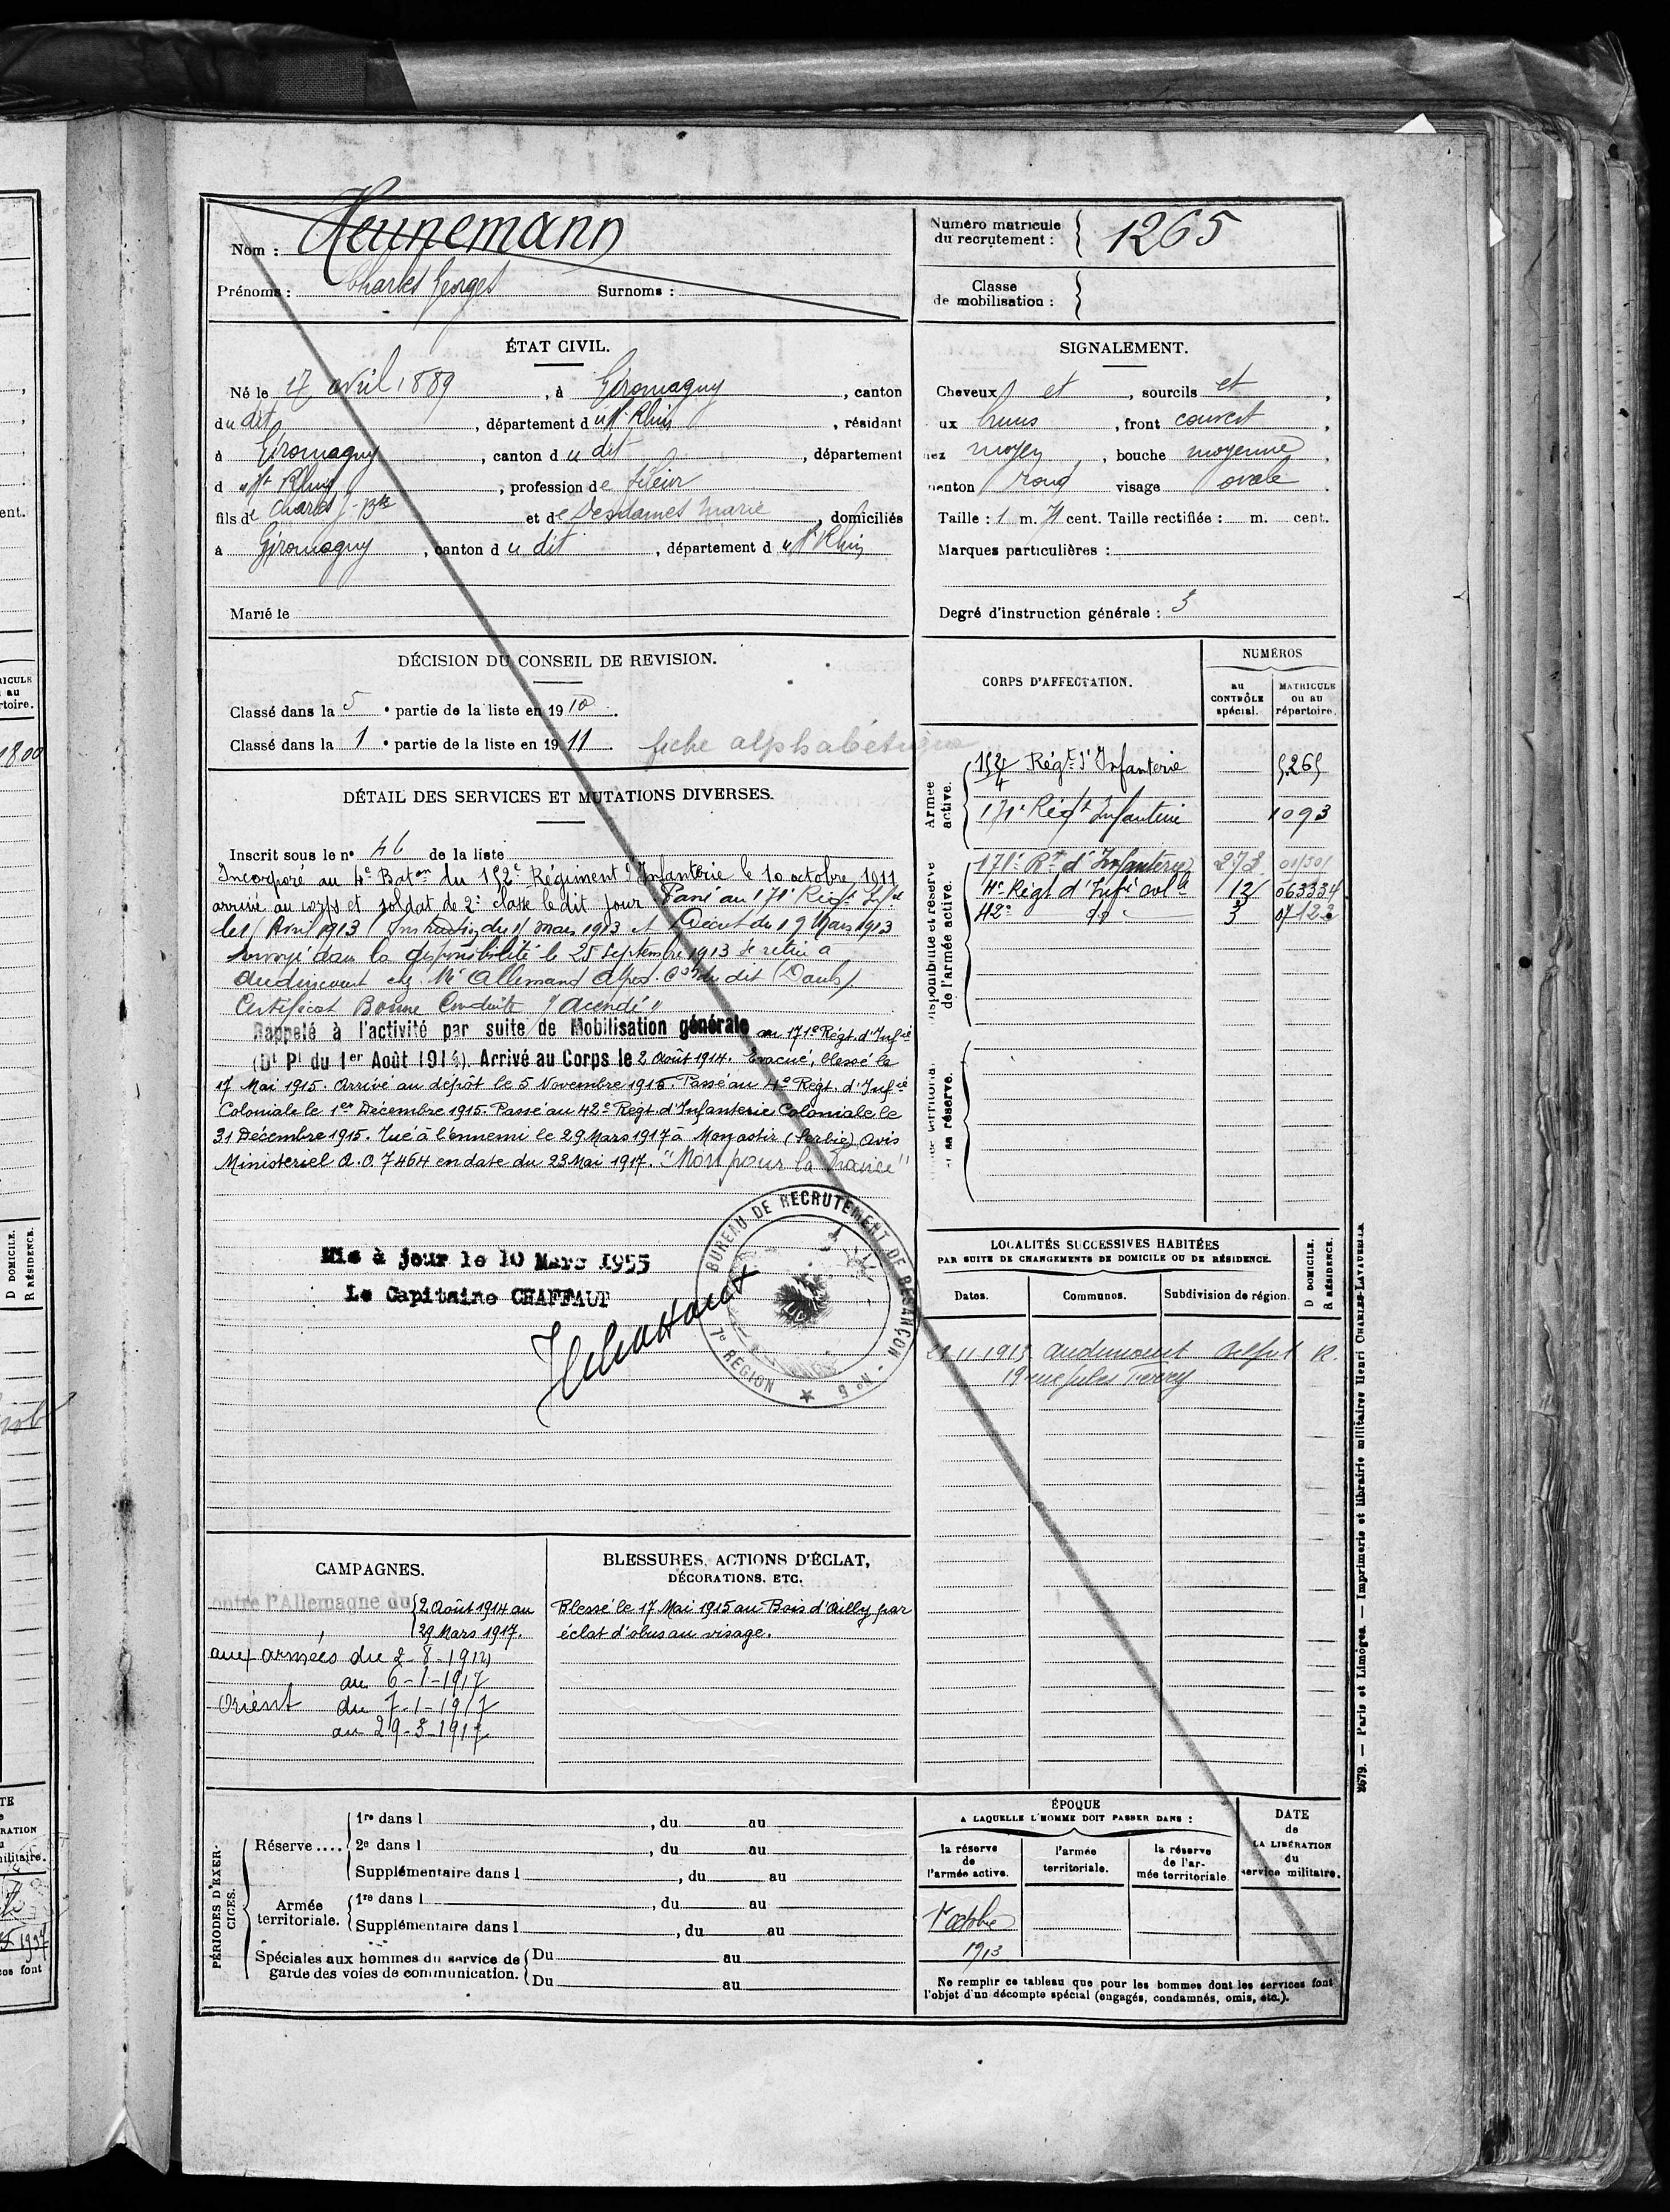 Nom : Heunemann
Prénoms : Charles Georges Surnoms :
Numéro matricule du recrutement : 1265
Classe de mobilisation :
ÉTAT CIVIL.
Né le 17 avril 1889, à Giromagny, canton
du dit, département du Ht Rhin, résidant
à Giromagny, canton du dit, département
d u Ht Rhin, profession de fileur
fils de Charles J. Bte et de Desdames Marie, domiciliés
à Giromagny, canton du dit, département du Ht Rhin
Marié le
SIGNALEMENT.
Cheveux et, sourcils et
ux bruns, front couvert,
nez moyen, bouche moyenne,
menton rond visage ovale.
Taille : 1 m. 71 cent. Taille rectifiée : m. cent.
Marques particulières :
Degré d'instruction générale : 3
DÉCISION DU CONSEIL DE REVISION.
Classé dans la 5e partie de la liste en 1910.
Classé dans la 1e partie de la liste en 1911. fiche alphabétique
DÉTAIL DES SERVICES ET MUTATIONS DIVERSES.
Inscrit sous le no 46 de la liste
Incorporé au 4e Baton du 152e Régiment d'Infanterie le 10 octobre 1911
arrivé au corps et soldat de 2e classe le dit jour. Passé au 171e Régt Infie
le Avril 1913 Instruction du mars 1913 et Décret du 19 Mars 1913
Envoyé dans la disponibilité le 25 Septembre 1913 se retire à
Audincourt chez Mr Allemand Con du dit (Doubs)
Certificat Bonne Conduite "Accordé"
Rappelé à l'activité par suite de Mobilisation générale au 171e Régt. d'Infie
(Dt Pl du 1er Août 1914). Arrivé au Corps le 2 Août 1914. Évacué, blessé le
17 Mai 1915. Arrivé au dépôt le 5 Novembre 1915. Passé au 4e Régt. d'Infie
Coloniale le 1er Décembre 1915. Passé au 42e Régt. d'Infanterie Coloniale le
31 Décembre 1915. Tué à l'ennemi le 29 Mars 1917 à Monastir (Serbie) Avis
Ministeriel A.O. 7464 en date du 23 Mai 1917. "Mort pour la France"
Mis à jour le 10 Mars 1955
Le Capitaine CHAFFAUT
BUREAU DE RECRUTEMENT DE BESANÇON - No 5
7e RÉGION
CORPS D'AFFECTATION.
NUMÉROS
au CONTRÔLE spécial.
MATRICULE ou au répertoire.
Armée active.
152/4 Régt d'Infanterie 5265
171e Régt Infanterie 1093
Disponibilité et réserve de l'armée active.
171e Rt d'Infanterie 273
4e Régt d'Infie colle 12 063334
42e do 3 07123
sa réserve.
LOCALITÉS SUCCESSIVES HABITÉES
PAR SUITE DE CHANGEMENTS DE DOMICILE OU DE RÉSIDENCE.
Dates. Communes. Subdivision de région. D DOMICILE. R RÉSIDENCE.
11 1913 Audincourt Belfort R.
19 rue Jules Ferry
CAMPAGNES.
contre l'Allemagne du 2 Août 1914 au
29 Mars 1917.
aux armées du 2-8-1914
au 6-1-1917
Orient du 7-1-1917
au 29-3-1917
BLESSURES, ACTIONS D'ÉCLAT,
DÉCORATIONS, ETC.
Blessé le 17 Mai 1915 au Bois d'Ailly par
éclat d'obus au visage.
PÉRIODES D'EXERCICES.
Réserve....
1re dans l , du au
2e dans l , du au
Supplémentaire dans l , du au
Armée territoriale.
1re dans l , du au
Supplémentaire dans l , du au
Spéciales aux hommes du service de garde des voies de communication.
Du au
Du au
ÉPOQUE
A LAQUELLE L'HOMME DOIT PASSER DANS :
la réserve de l'armée active.
l'armée territoriale.
la réserve de l'armée territoriale.
DATE de LA LIBÉRATION du service militaire.
1er octobre
1913
Ne remplir ce tableau que pour les hommes dont les services font
l'objet d'un décompte spécial (engagés, condamnés, omis, etc.).
2679. — Paris et Limoges. — Imprimerie et librairie militaires Henri CHARLES-LAVAUZELLE